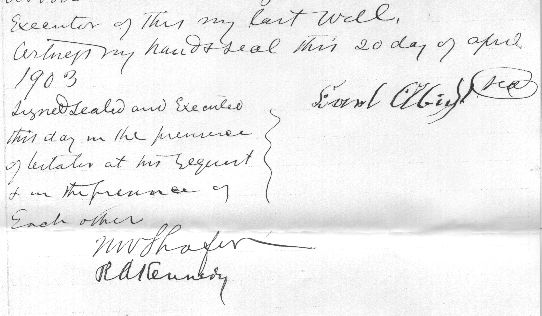 Executor of this my last Will.
Witness my hand & seal this 20 day of april
1903
Signed sealed and Executed
this day in the presence
of testator at his request
& in the presence of
Each other
seal
M V Shafer
R A Kennedy